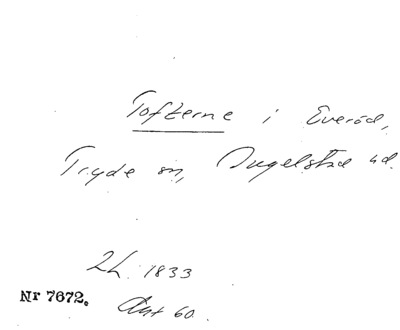 Tofterne i Everöd,
Tryde sn, Ingelstad hd.
2L. 1833
Nr 7672.
Akt 60.